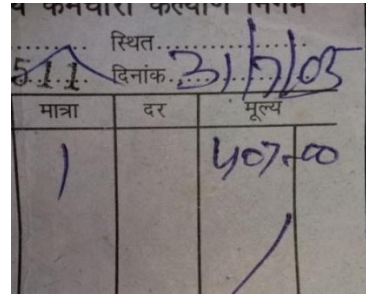 कर्मचारी कल्याण निगम
स्थित
511 दिनांक 31/7/05
मात्रा दर मूल्य
1 407-00